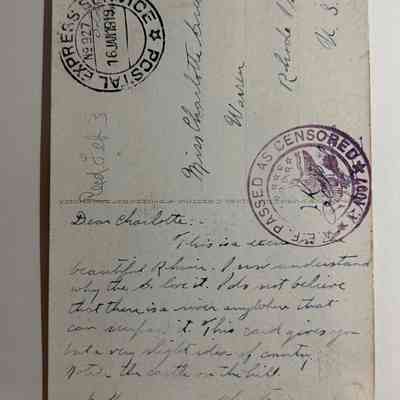 POSTAL EXPRESS SERVICE
No 927
16 JAN 1919
Miss Charlotte
Warren
Rhode
U. S.
Rec'd Feb 3
A. E. F. PASSED AS CENSORED
Dear Charlotte:-
This is a
beautiful Rhine. I now understand
why the G. love it. I do not believe
that there is a river anywhere that
can surpass it. This card gives you
but a very slight idea of country.
Note the castle on the hill.